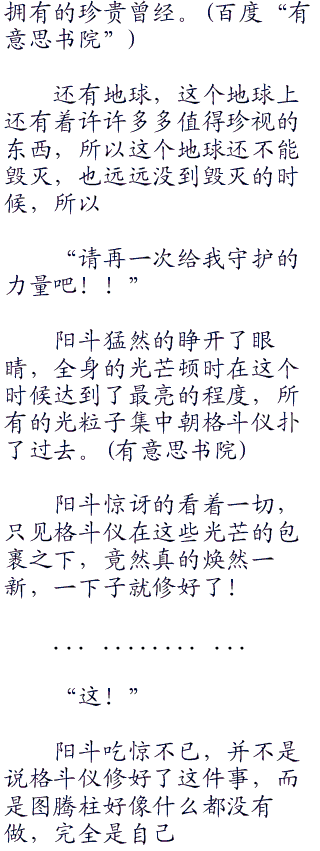 拥有的珍贵曾经。(百度“有
意思书院”)
还有地球，这个地球上
还有着许许多多值得珍视的
东西，所以这个地球还不能
毁灭，也远远没到毁灭的时
候，所以
“请再一次给我守护的
力量吧！！”
阳斗猛然的睁开了眼
睛，全身的光芒顿时在这个
时候达到了最亮的程度，所
有的光粒子集中朝格斗仪扑
了过去。(有意思书院)
阳斗惊讶的看着一切，
只见格斗仪在这些光芒的包
裹之下，竟然真的焕然一
新，一下子就修好了！
... ........ ...
“这！”
阳斗吃惊不已，并不是
说格斗仪修好了这件事，而
是图腾柱好像什么都没有
做，完全是自己